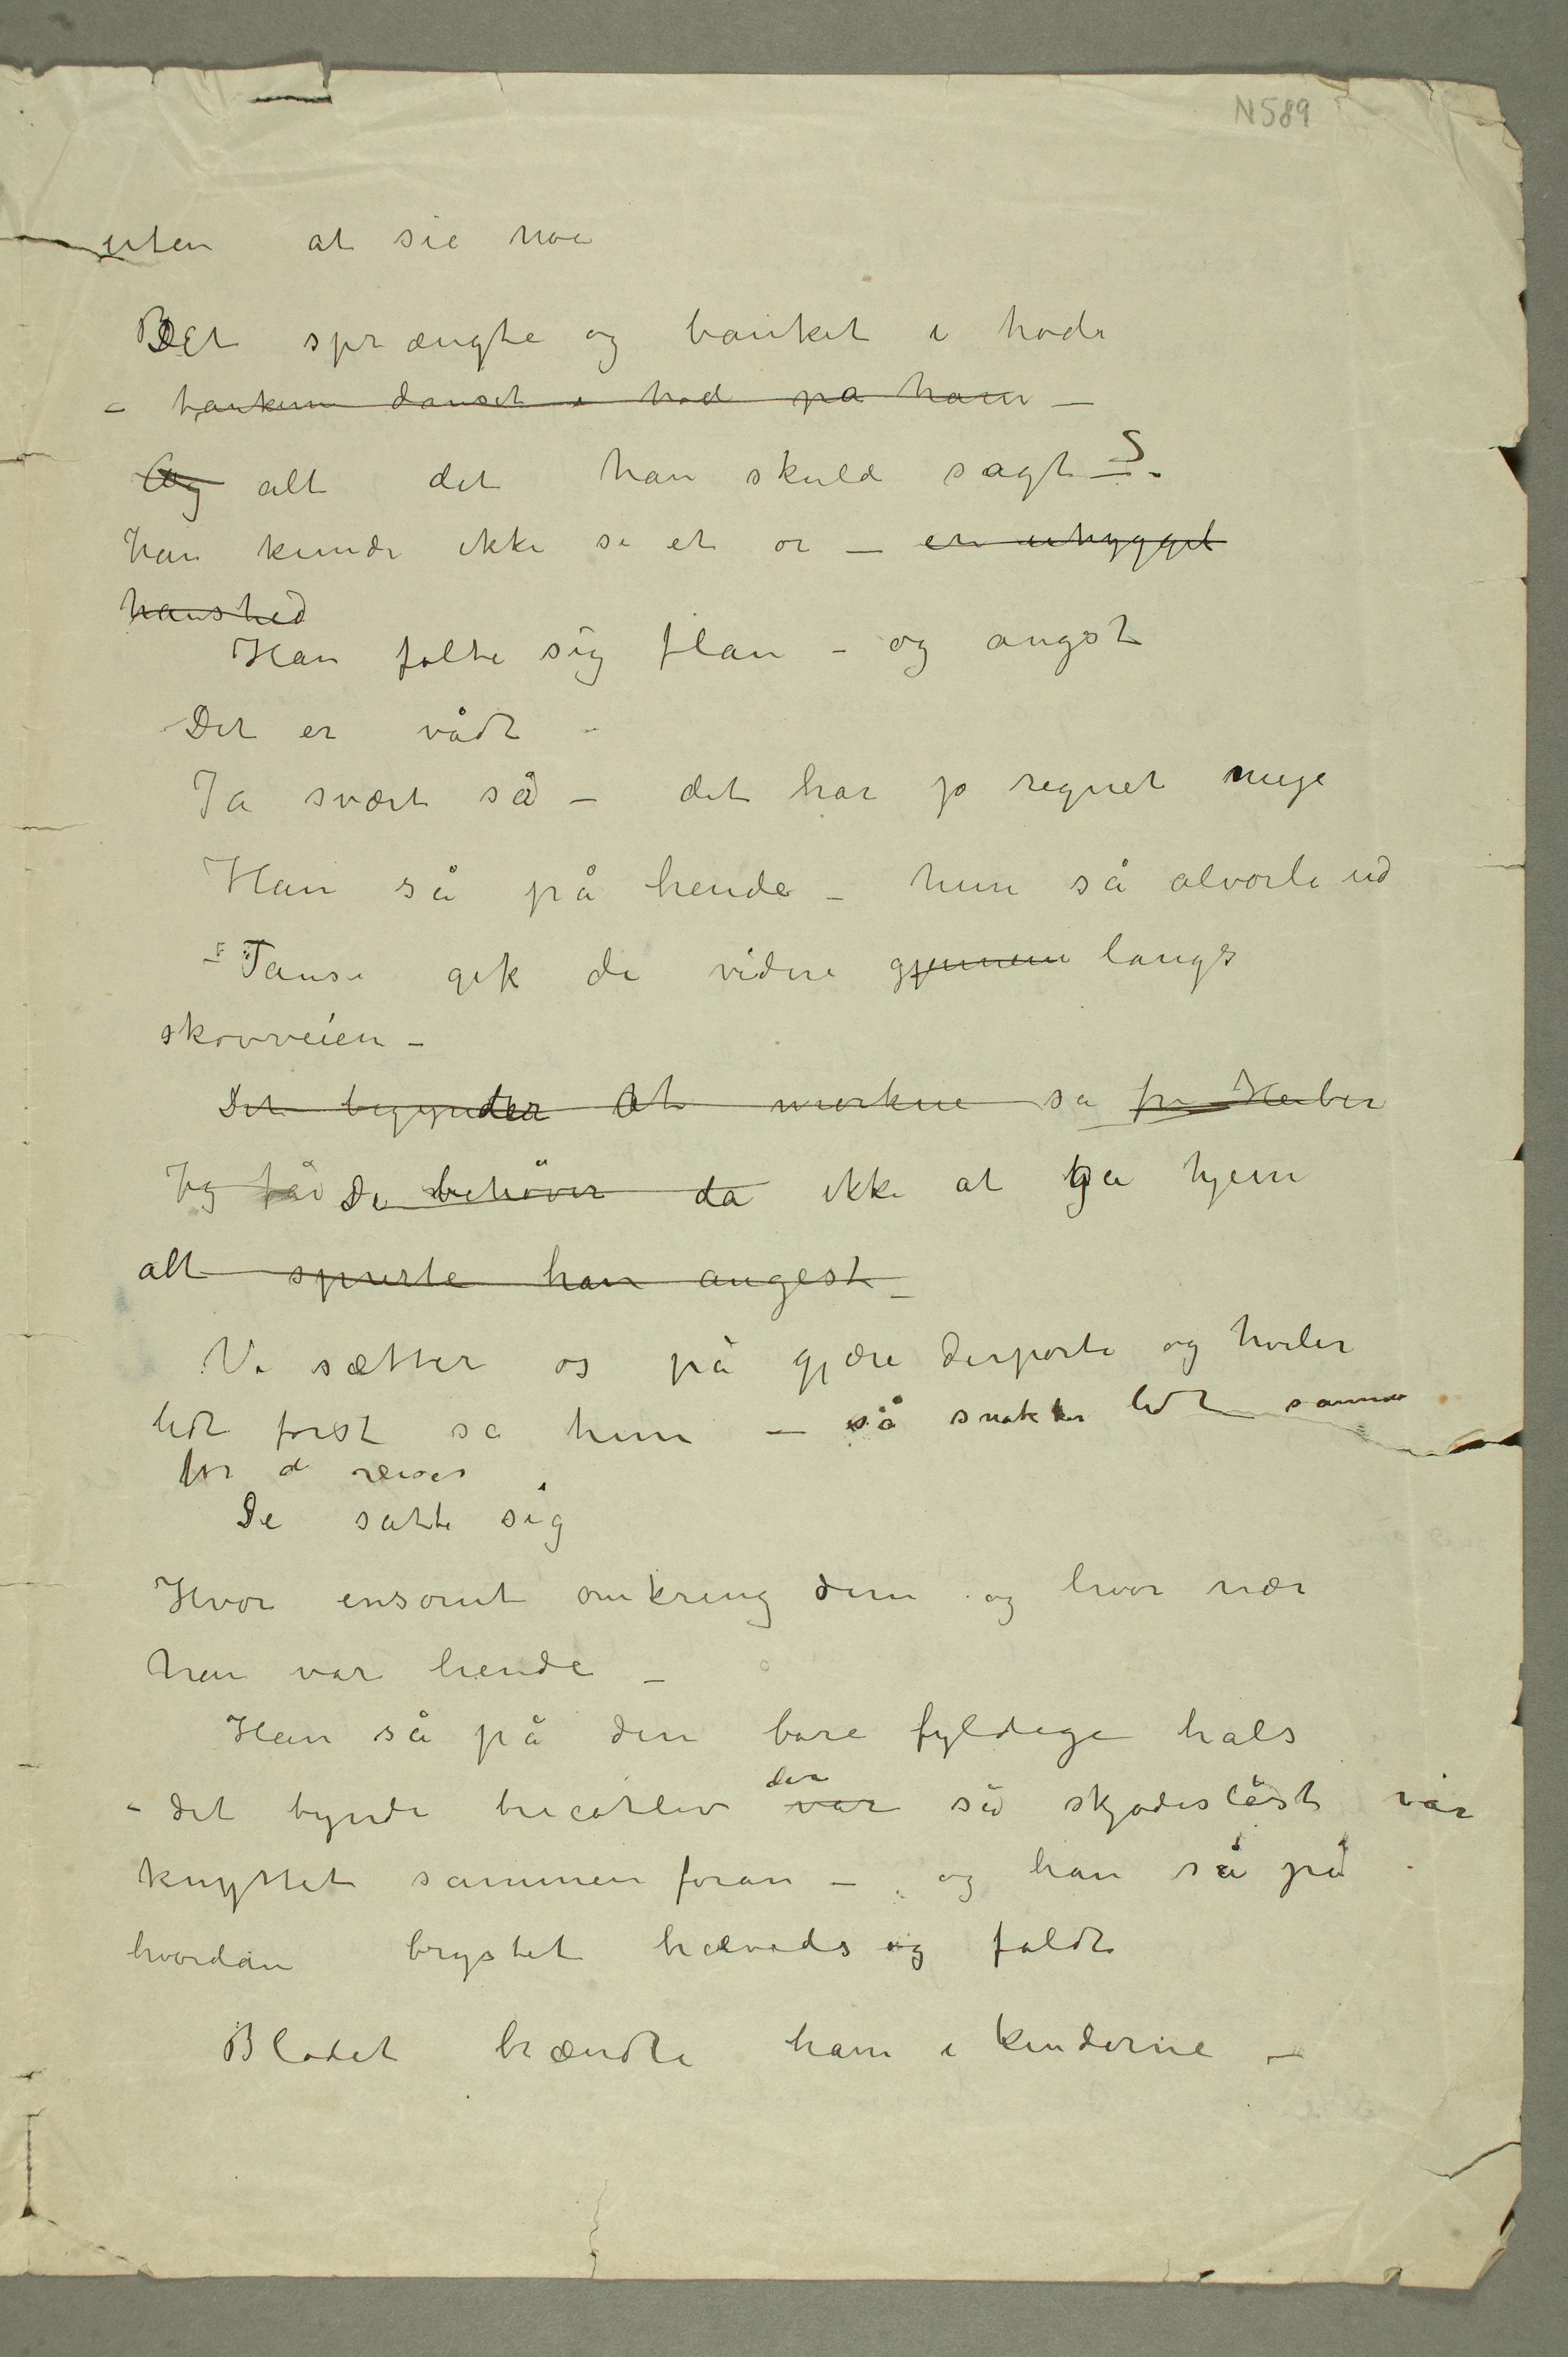 N589
uten at sie noe
Det sprængte og banket i hode
– tankene danset i hod på ham –
Og alt det han skuld sagt –.
han kunde ikke si et or – en uhyggel
haushed
Han følte sig flau – og angst
Det er vådt –
Ja svært så – det har jo regnet meye
Han så på hende – hun så alvorli ud
– Tause gik de videre gjennem langs
skovveien –
Det begynder at mørkne sa fru Heiber
Jeg får De behöver da ikke at ga hjem
alt spurte han angest –
Vi sætter os på gjære derporte og hviler
lidt først sa hun – så snakker lidt samme
før de reiser
De satte sig
Hvor ensomt omkring dem og hvor nær
han var hende –
Han så på den bare fyldige hals
– det tynde trecotliv der var så skjødesløst var
knyttet sammen foran – og han så på
hvordan brystet hævedes og faldt
Blodet brændte ham i kinderne –